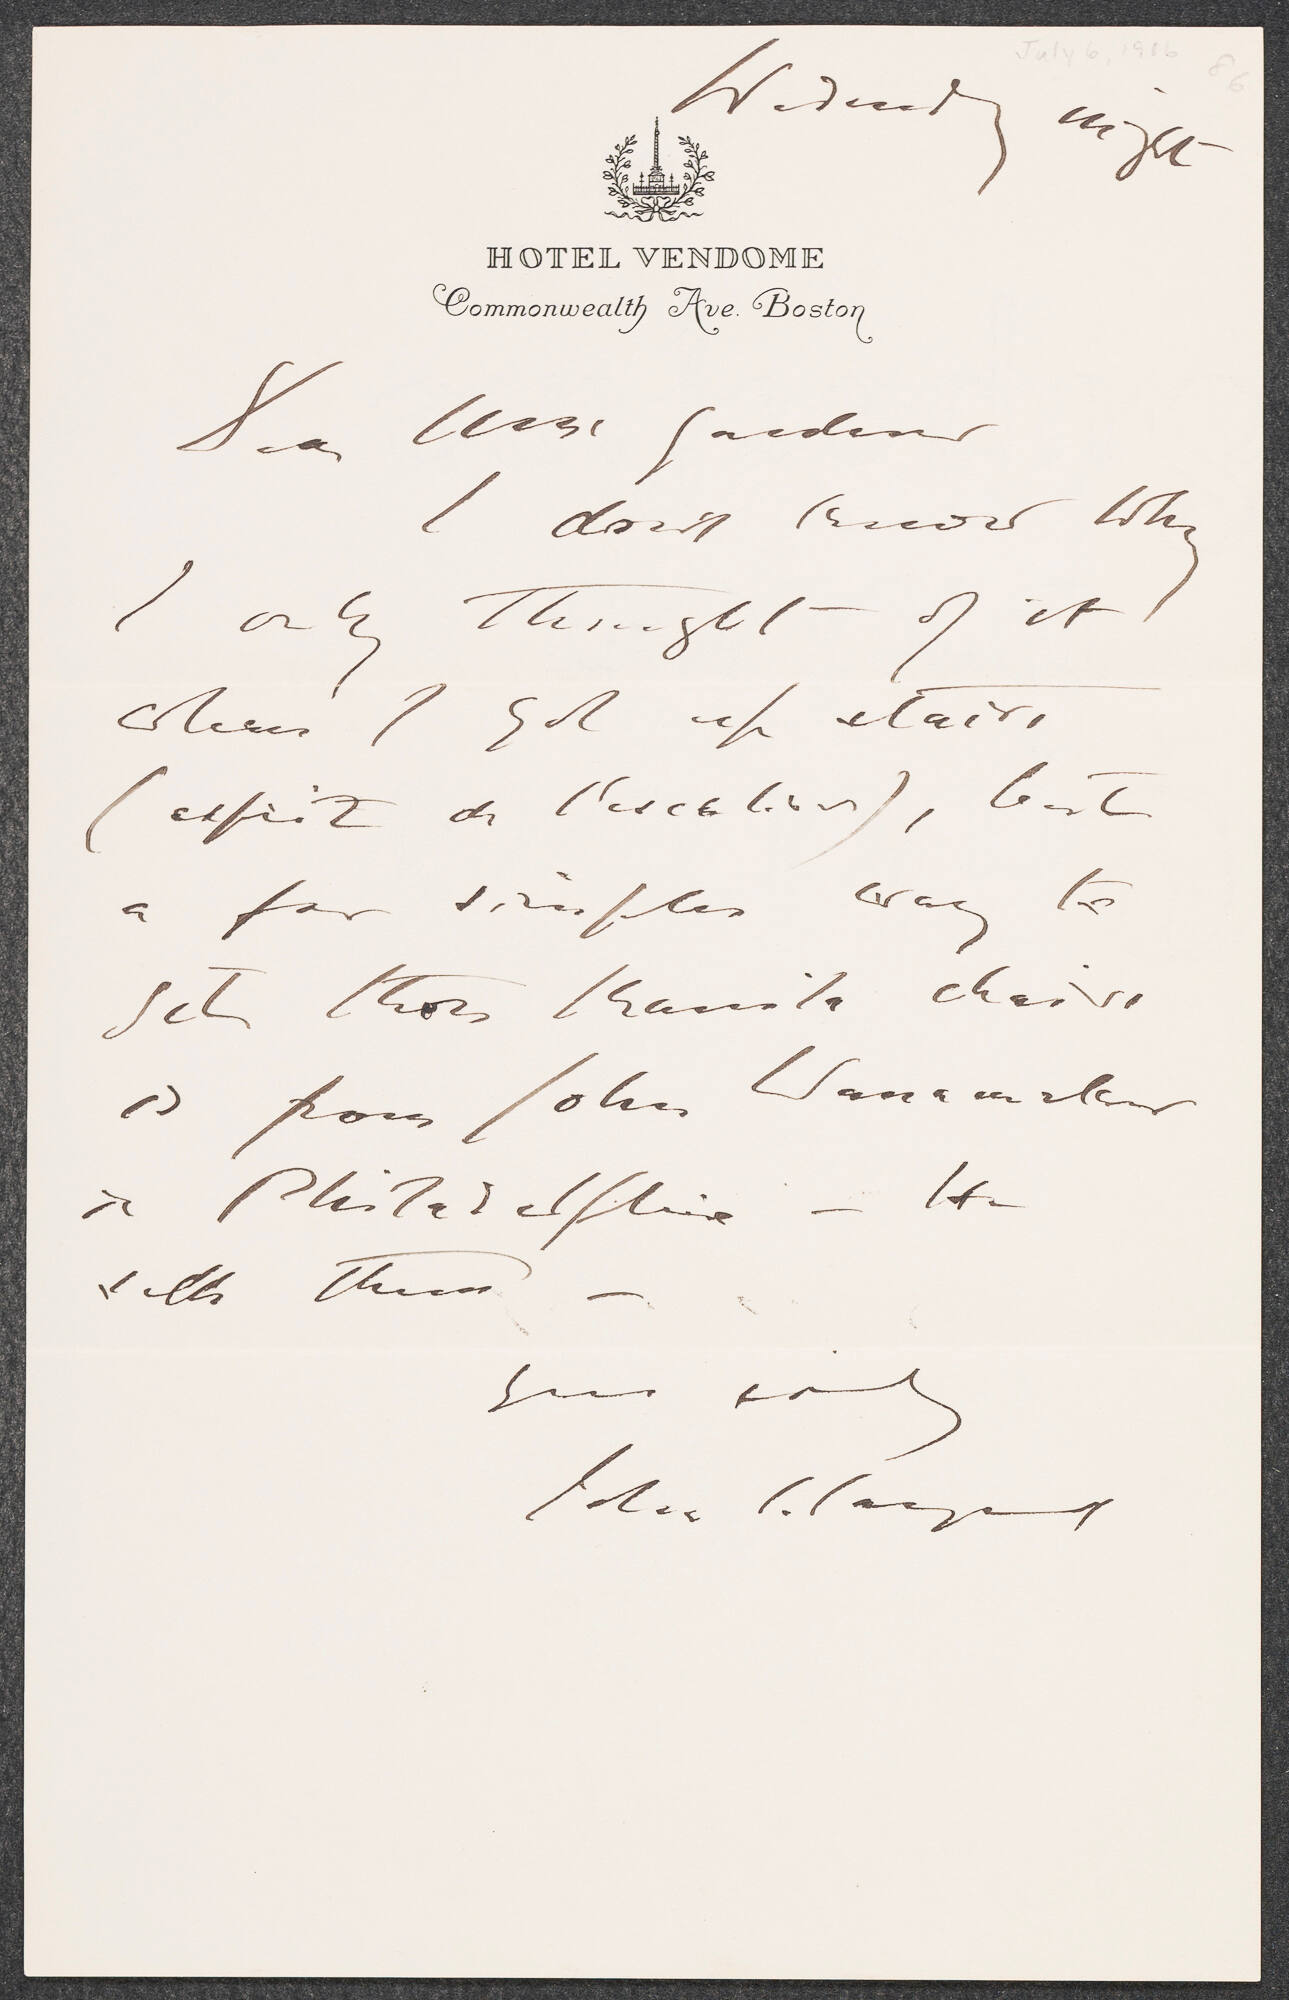 July 6, 1916
86
Wednesday night
HOTEL VENDOME
Commonwealth Ave. Boston
Dear Mrs. Gardner
I don't know why
I only thought of it
when I got up stairs
(esprit de l'escalier), but
a far simpler way to
get those Manila chairs
is from John Wanamaker
in Philadelphia – He
sells them –
Yours sincerely
John S. Sargent